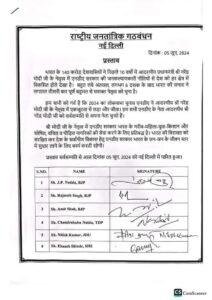 राष्ट्रीय जनतांत्रिक गठबंधन
नई दिल्ली
दिनांक : 05 जून, 2024
प्रस्ताव
भारत के 140 करोड़ देशवासियों ने पिछले 10 वर्षों में आदरणीय प्रधानमंत्री श्री नरेंद्र
मोदी जी के नेतृत्व में एनडीए सरकार की जनकल्याणकारी नीतियों से देश को हर क्षेत्र में
विकसित होते देखा है। बहुत लंबे अंतराल, लगभग 6 दशक के बाद भारत की जनता ने
लगातार तीसरी बार पूर्ण बहुमत से सशक्त नेतृत्व को चुना है।
हम सभी को गर्व है कि 2024 का लोकसभा चुनाव एनडीए ने आदरणीय श्री नरेंद्र
मोदी जी के नेतृत्व में एकजुटता से लड़ा और जीता। हम सभी एनडीए के नेता आदरणीय श्री
नरेंद्र मोदी जी को सर्वसम्मति से अपना नेता चुनते हैं।
श्री मोदी जी के नेतृत्व में एनडीए सरकार भारत के गरीब-महिला-युवा-किसान और
शोषित, वंचित व पीड़ित नागरिकों की सेवा करने के लिए प्रतिबद्ध है। भारत की विरासत को
संरक्षित कर देश के सर्वांगीण विकास हेतु एनडीए सरकार भारत के जन-जन के जीवन स्तर
में सुधार लाने के लिए कार्य करती रहेगी।
प्रस्ताव सर्वसम्मति से आज दिनांक 05 जून, 2024 को नई दिल्ली में पारित हुआ।
S.NO. NAME SIGNATURE
1. Sh. J.P. Nadda, BJP
2. Sh. Rajnath Singh, BJP
3. Sh. Amit Shah, BJP
4. Sh. Chandrababu Naidu, TDP
5. Sh. Nitish Kumar, JDU
6. Sh. Eknath Shinde, SHS
CS CamScanner